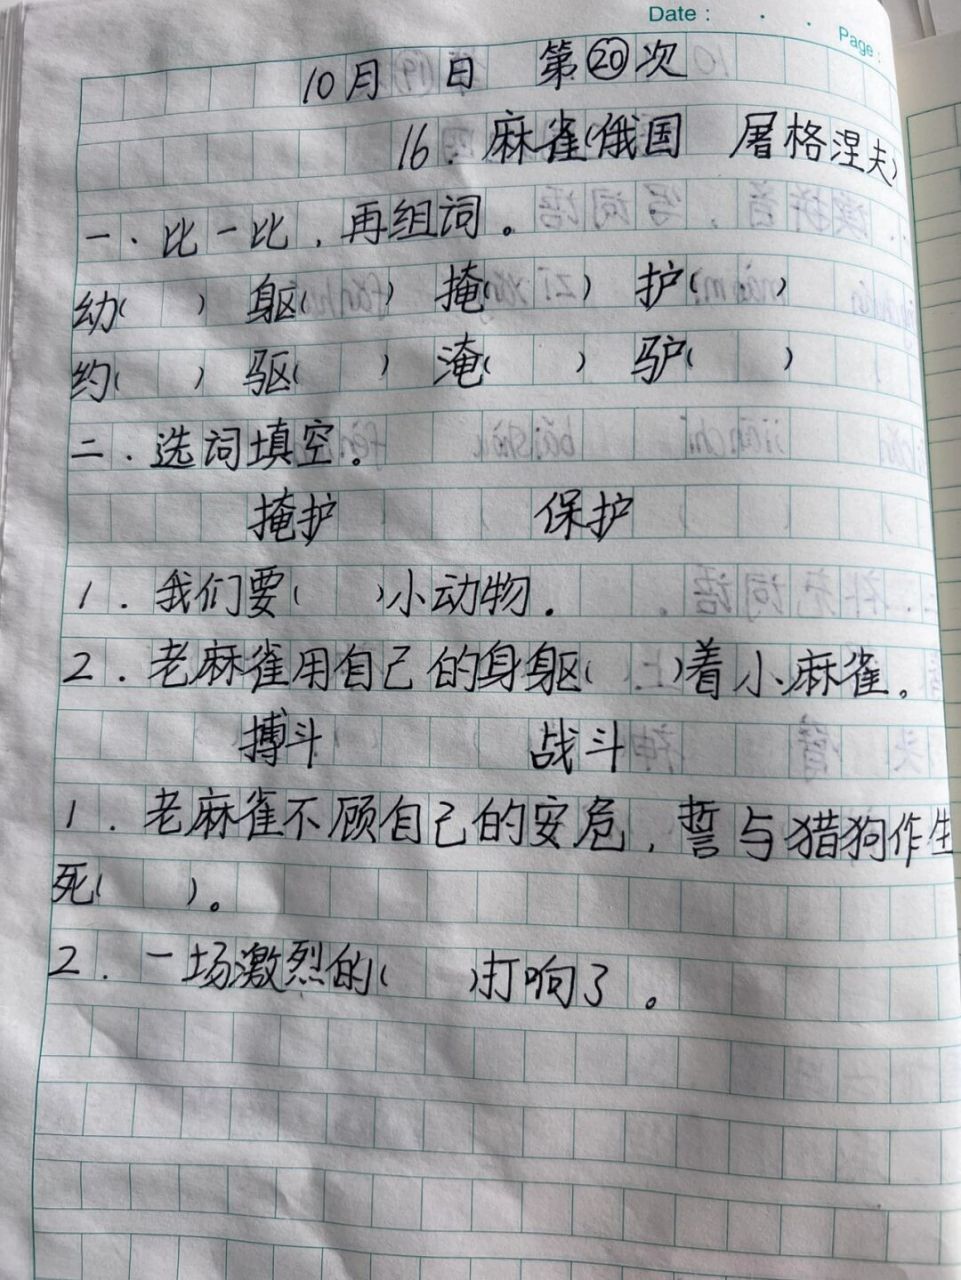 Date : . .
Page :
10月 日 第⑳次
16. 麻雀(俄国 屠格涅夫)
一、比一比，再组词。
幼( ) 躯( ) 掩( ) 护( )
约( ) 驱( ) 淹( ) 驴( )
二．选词填空。
掩护 保护
1．我们要( )小动物．
2．老麻雀用自己的身躯( )着小麻雀。
搏斗 战斗
1．老麻雀不顾自己的安危，誓与猎狗作生
死( )。
2．一场激烈的( )打响了。